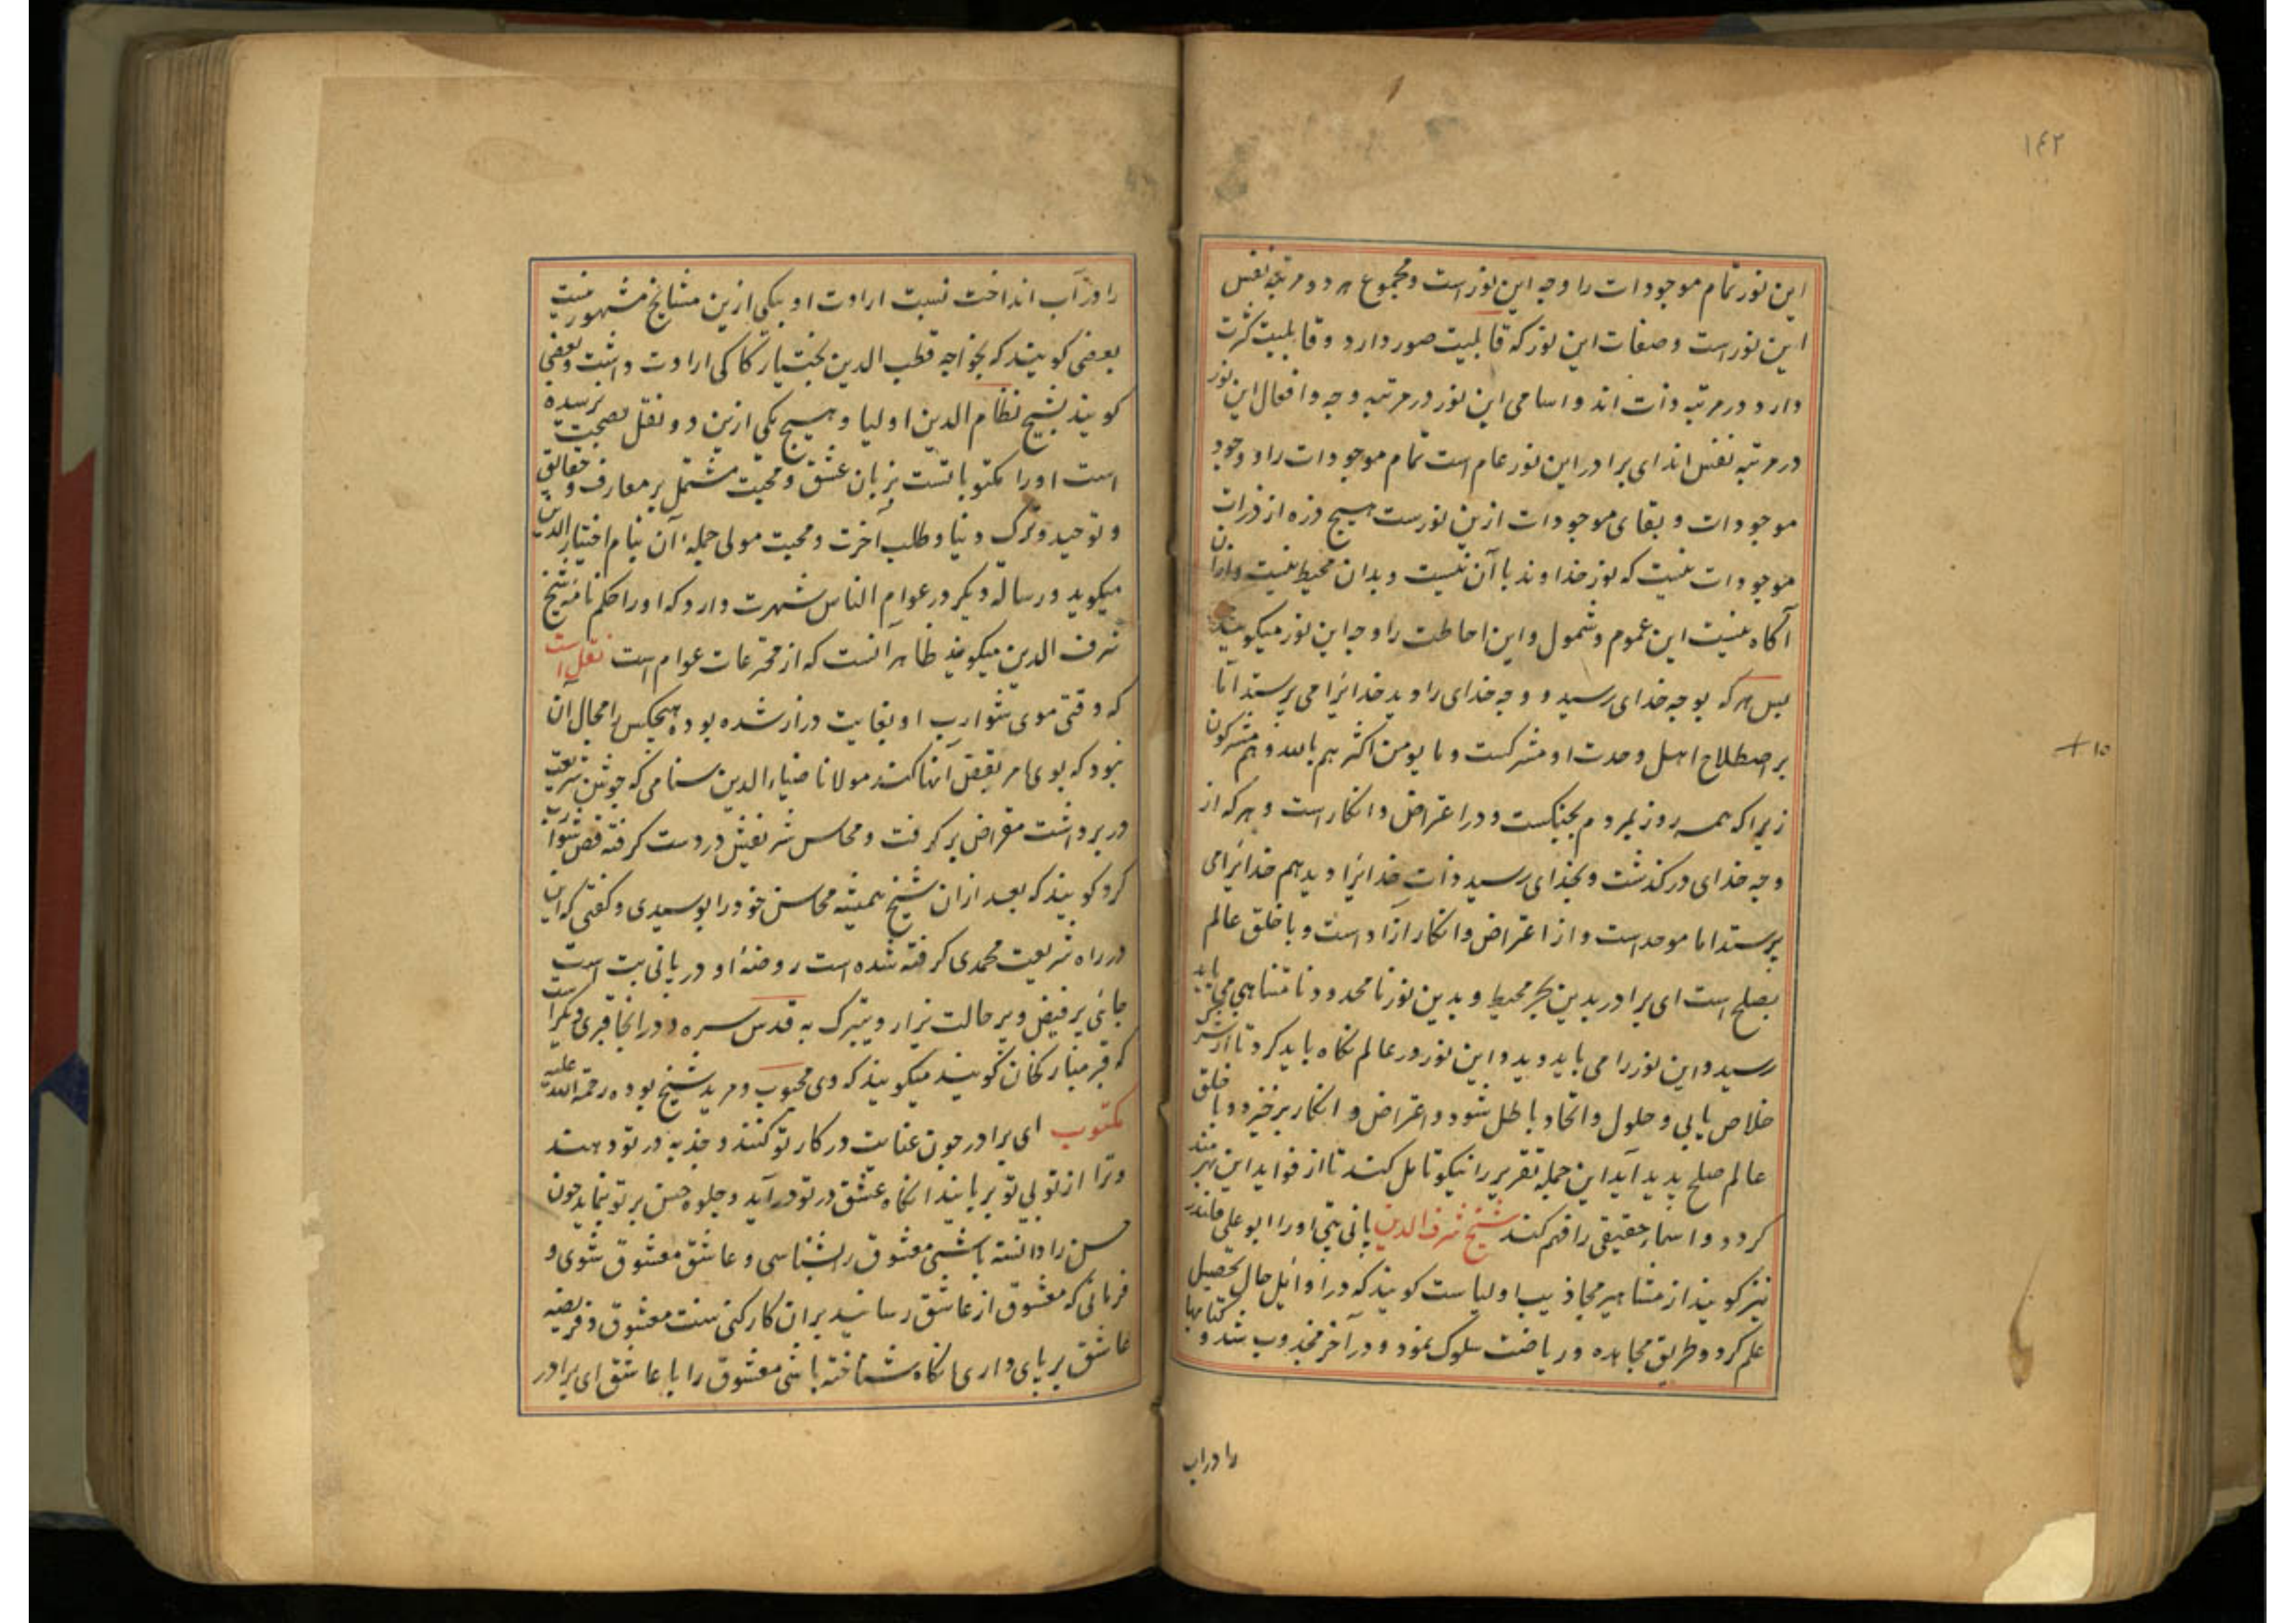 ۱۴۲
این نور تمام موجودات را وجه این نور است و مجموع هر دو مرتبه نفس
این نور است و صفات این نور که قابلیت صور دارد و قابلیت کثرت
دارد و در مرتبه ذات اند و اسامی این نور در مرتبه وجه و افعال این نور
در مرتبه نفس اند ای برادر این نور عام است تمام موجودات را و وجود
موجودات و بقای موجودات ازین نورست هیچ ذره از ذرات
موجودات نیست که نور خداوند با آن نیست و بدان محیط نیست و ازان
آگاه نیست این عموم و شمول و این احاطت را وجه این نور میگویند
پس هر که بوجه خدای رسید و وجه خدای را دید خدایرا می پرستد اما
بر اصطلاح اهل وحدت او مشرکست و ما یومن اکثرهم بالله و هم مشرکون
زیرا که همه روز بمردم بجنگست و در اعتراض و انکار است و هر که از
وجه خدای در گذشت و بخدای رسید و ذات خدایرا دید هم خدایرا می
پرستد اما موحد است و از اعتراض و انکار ازاد است و با خلق عالم
بصلح است ای برادر بدین بحر محیط و بدین نور نامحدود نامتناهی می باید
رسید و این نور را می باید دید و این نور در عالم نگاه باید کرد تا از شرک
خلاص یابی و حلول و اتحاد باطل شود و اعتراض و انکار برخیزد و با خلق
عالم صلح پدید آید این جمله تقریر را نیکو تامل کنند تا از فواید این بهرمند
گردد و اسماء حقیقی را فهم کنند شیخ شرف الدین پانی پتی او را ابو علی قلندر
نیز گویند از مشاهیر مجاذیب اولیاست گویند که در اوایل حال تحصیل
علم کرد و طریق مجاهده و ریاضت سلوک نمود و در آخر مجذوب شد و کتابها
را در اب
۱۵ +
را در آب انداخت نسبت ارادت او بیکی ازین مشایخ مشهور نیست
بعضی گویند که بخواجه قطب الدین بختیار کاکی ارادت داشت و بعضی
گویند بشیخ نظام الدین اولیا و هیچ یکی ازین دو نقل بصحت نرسیده
است او را مکتوباتست بزبان عشق و محبت مشتمل بر معارف و حقایق
و توحید و ترک دنیا و طلب آخرت و محبت مولی جمله آن بنام اختیار الدین
میگوید و رساله دیگر در عوام الناس شهرت دارد که او را حکم نامه شیخ
شرف الدین میگویند ظاهر آنست که از مخترعات عوام است نقل است
که وقتی موی شوارب او بغایت دراز شده بود هیچکس را مجال آن
نبود که بوی امر بقص آنها کند مولانا ضیاء الدین سنامی که جوش شریعت
در بر داشت مقراض بر گرفت و محاسن شریفش در دست گرفته قص شوارب
کرد گویند که بعد از ان شیخ همیشه محاسن خود را بوسیدی و گفتی که این
در راه شریعت محمدی گرفته شده است روضهٔ او در پانی پت است
جائی پر فیض و پر حالت یزار و یتبرک به قدس سره و در انجا قبری دیگر است
که قبر مبارک خان گویند میگویند که وی محبوب و مرید شیخ بوده رحمة الله علیه
مکتوب ای برادر چون عنایت در کار تو کنند و جذبه در تو دهند
و ترا از تویی تو بربایند انگاه عشق در تو درآید و جلوه حسن بر تو نماید چون
حسن را دانسته باشی معشوق را بشناسی و عاشق معشوق شوی و
فرمانی که معشوق از عاشق رسانید بران کار کنی سنت معشوق و فریضه
عاشق بر پای داری انگاه شناخته باشی معشوق را با عاشق ای برادر